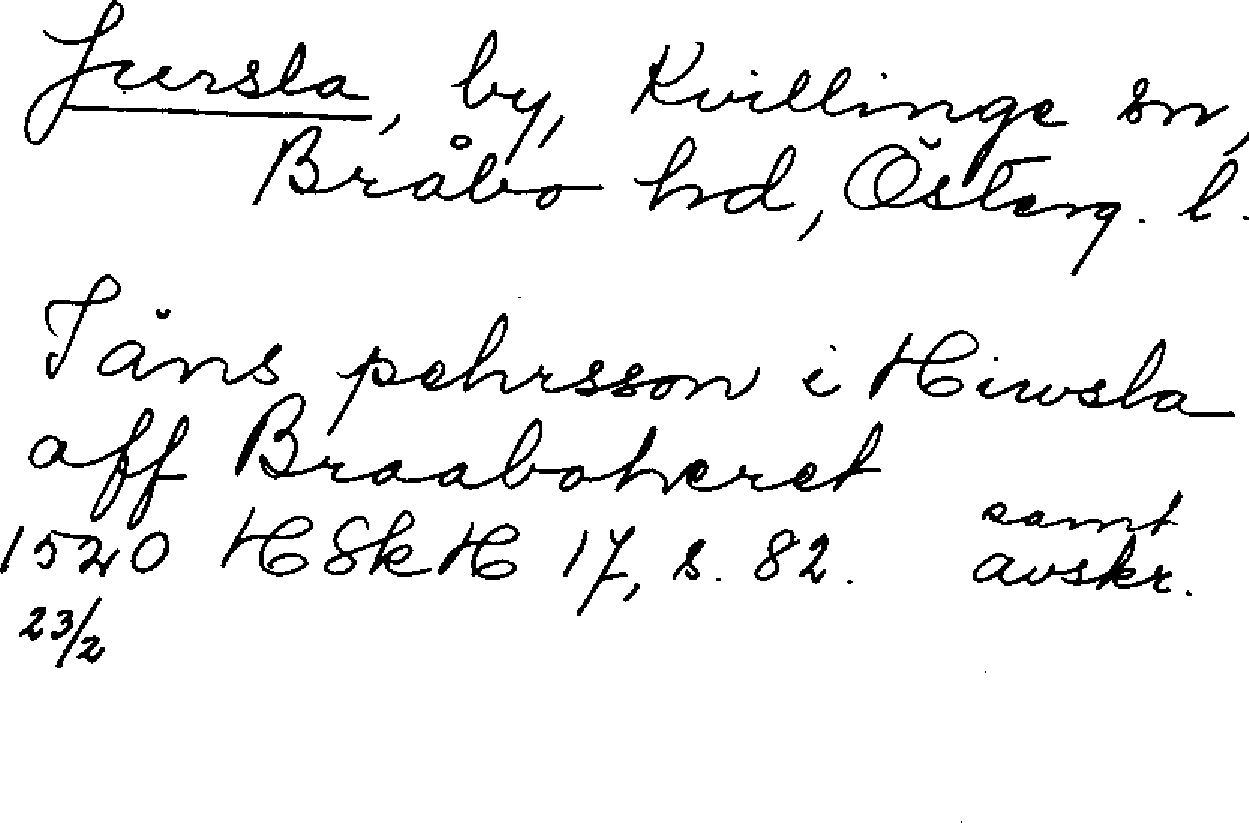 Jursla, by, Kvillinge sn,
Bråbo hd, Österg. l.
Jäns pehrsson i Hiwsla
aff Braaboheret
samt
1520 HSkH 17, s. 82. avskr.
23/2